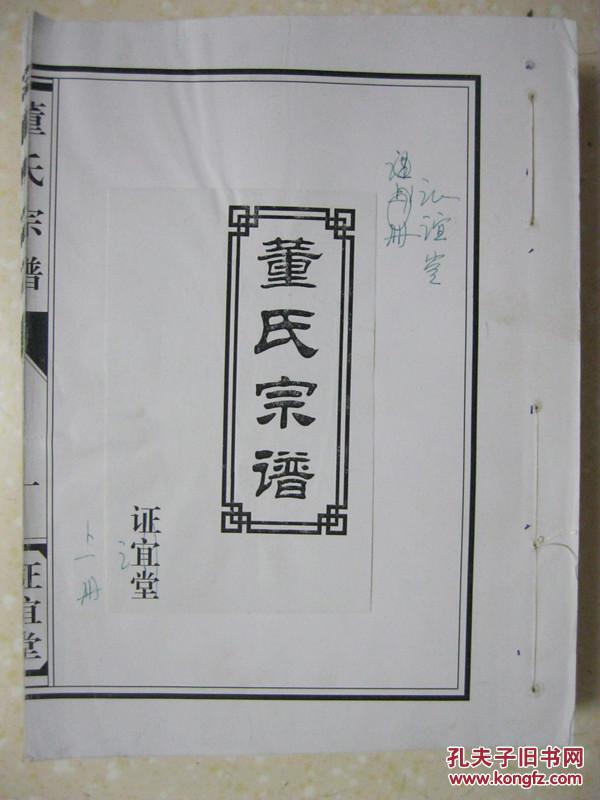 董氏宗谱
证宜堂
谊堂
册
上一册
董氏宗谱
一
证宜堂
孔夫子旧书网
www.kongfz.com